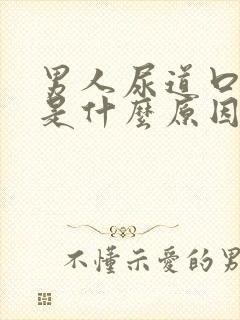 男人尿道口
是什麼原因
不懂示愛的男